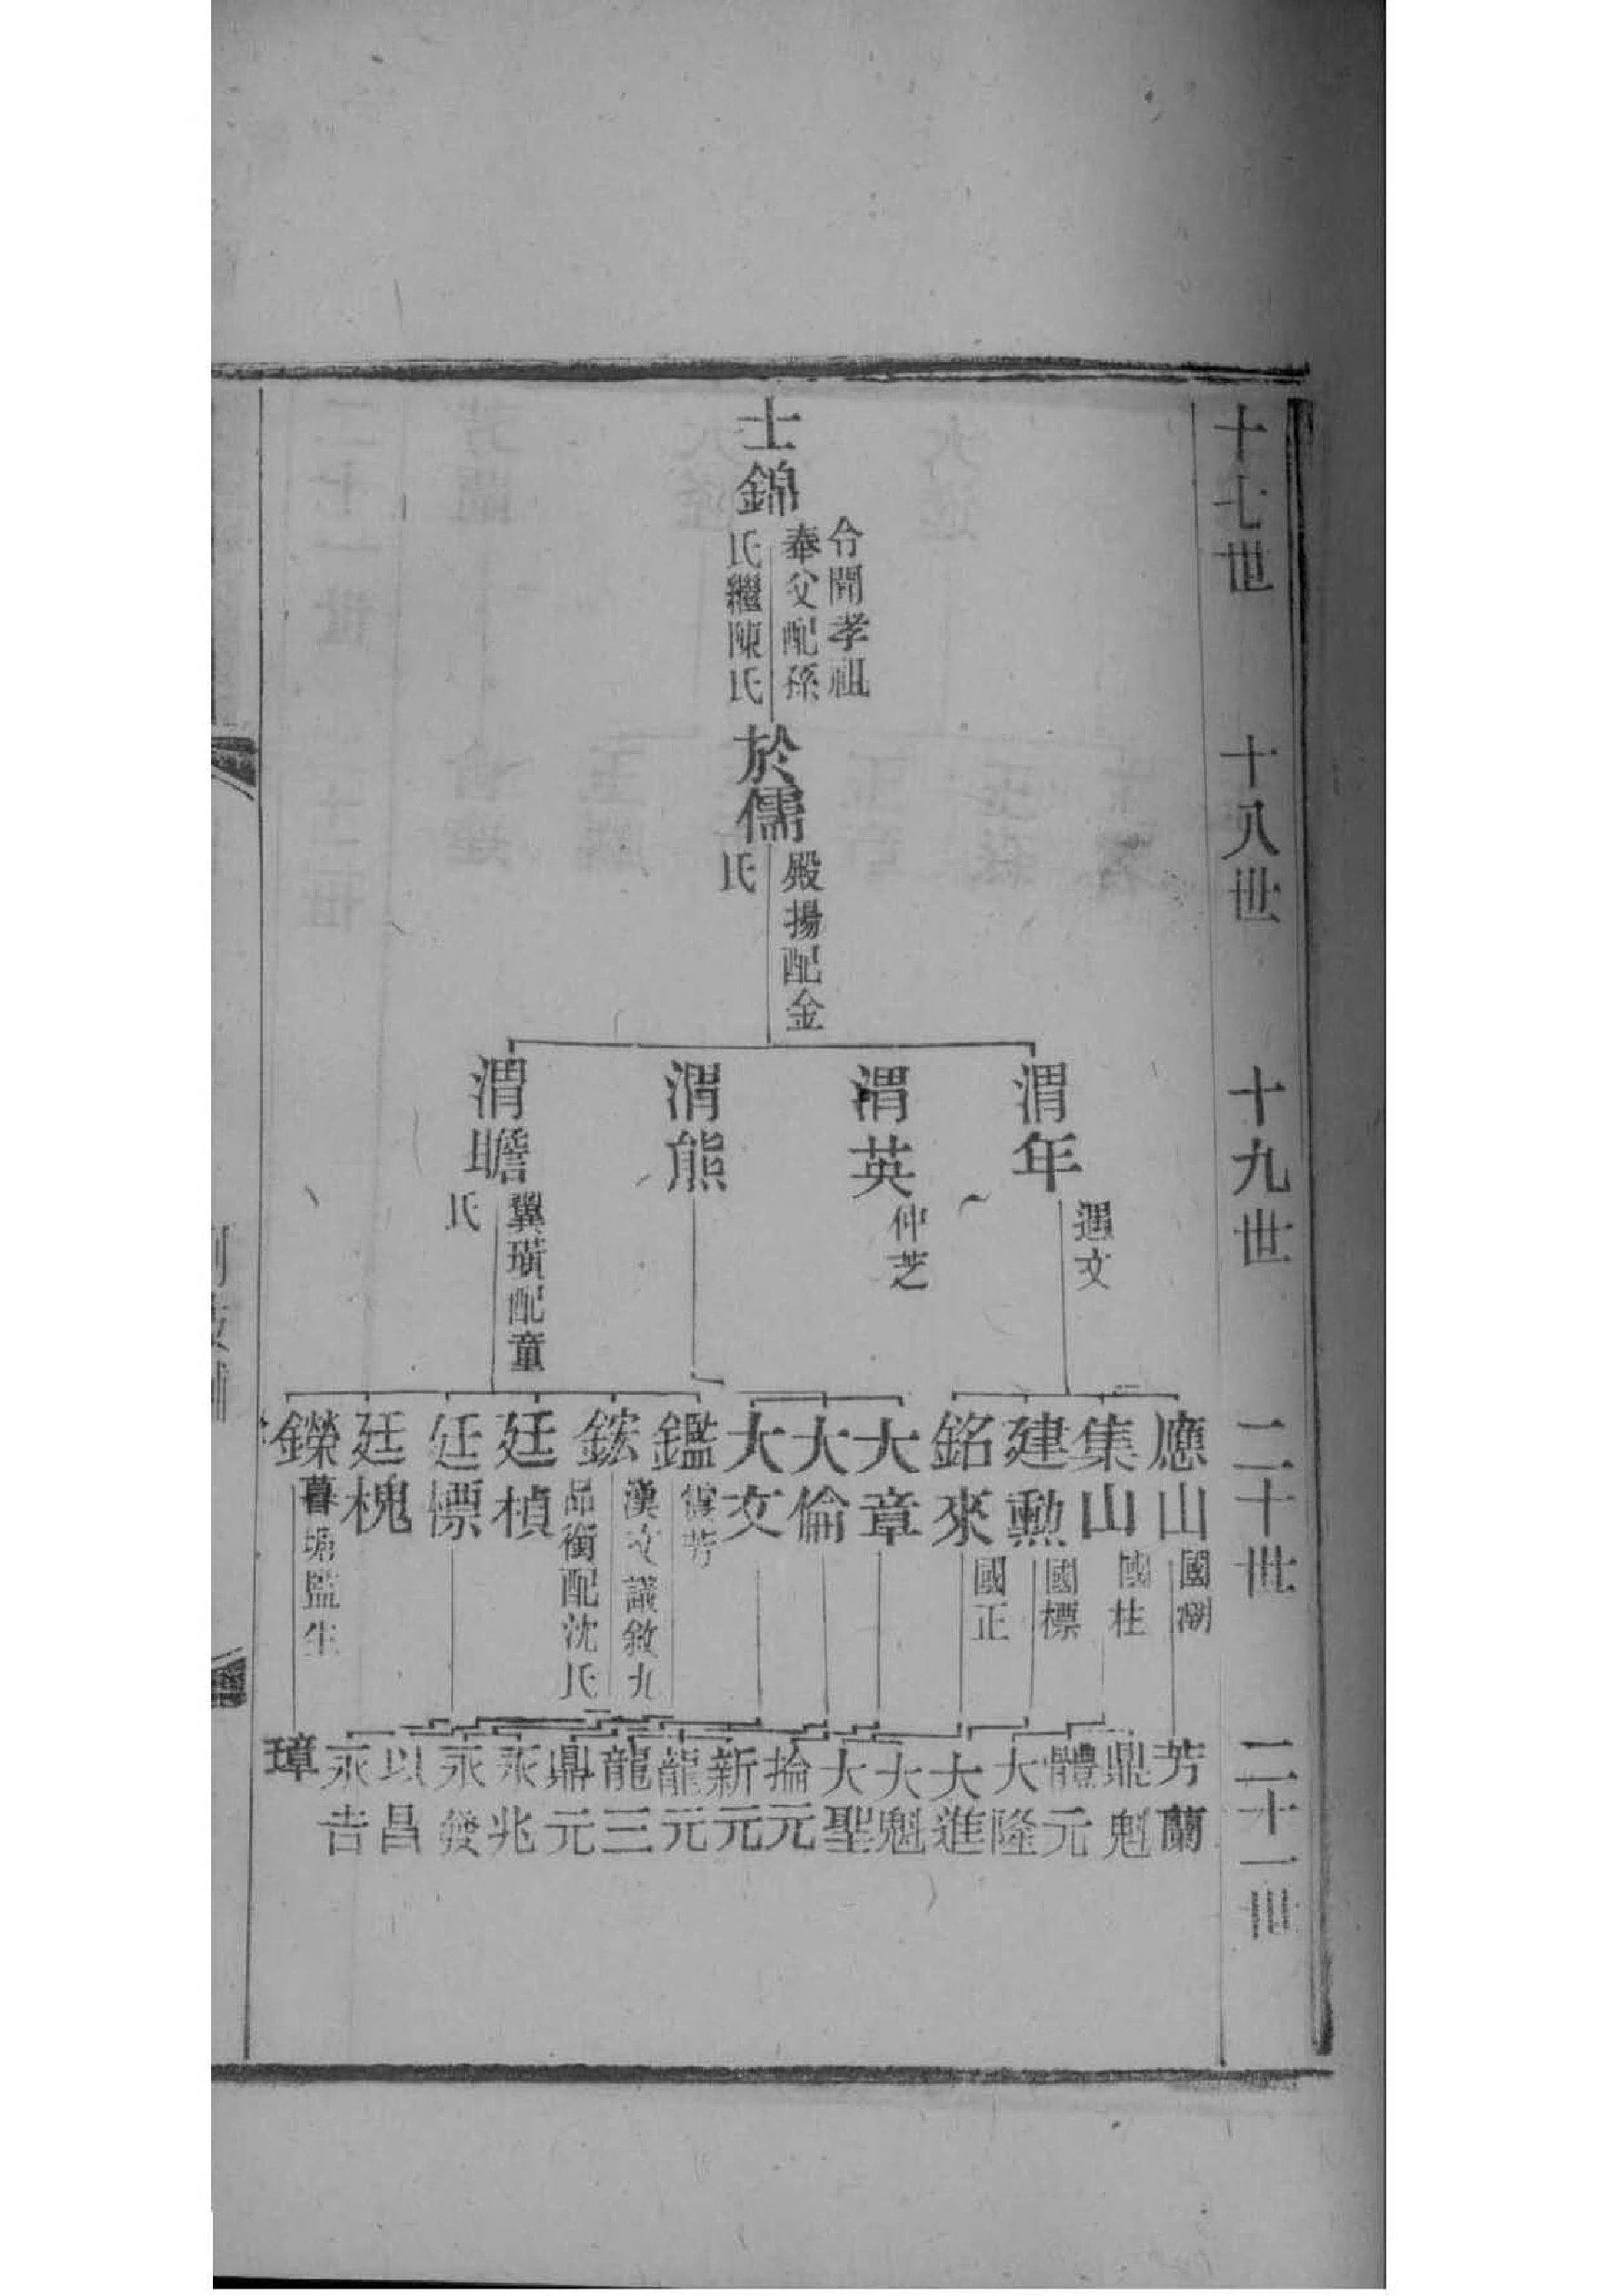 十七世
十八世
十九世
二十世
二十一世
士錦
令聞孝祖
奉父配孫
氏繼陳氏
於儒
殿揚配金
氏
渭年
遇文
渭英
仲芝
渭熊
渭瞻
翼璜配童
氏
應山
國潮
集山
國柱
建勲
國標
銘來
國正
大章
大倫
大文
鑑
芳
鋐
漢文議敘九
品銜配沈氏
廷楨
廷標
廷槐
鑅
暮塘監生
芳蘭
鼎魁
體元
大隆
大進
大魁
大聖
掄元
新元
龍元
龍三
鼎元
永兆
永發
以昌
永吉
璋